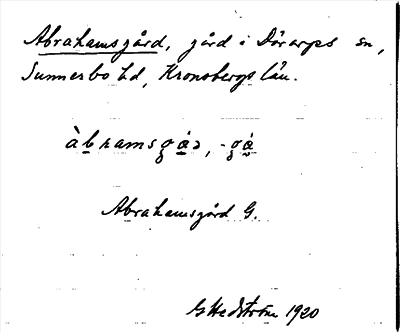 Abrahamsgård, gård i Dörarps sn,
Sunnerbo hd, Kronobergs län.
àbramsgȧ́ꝛ, -gȧ́
Abrahamsgård G.
G Hedström 1920